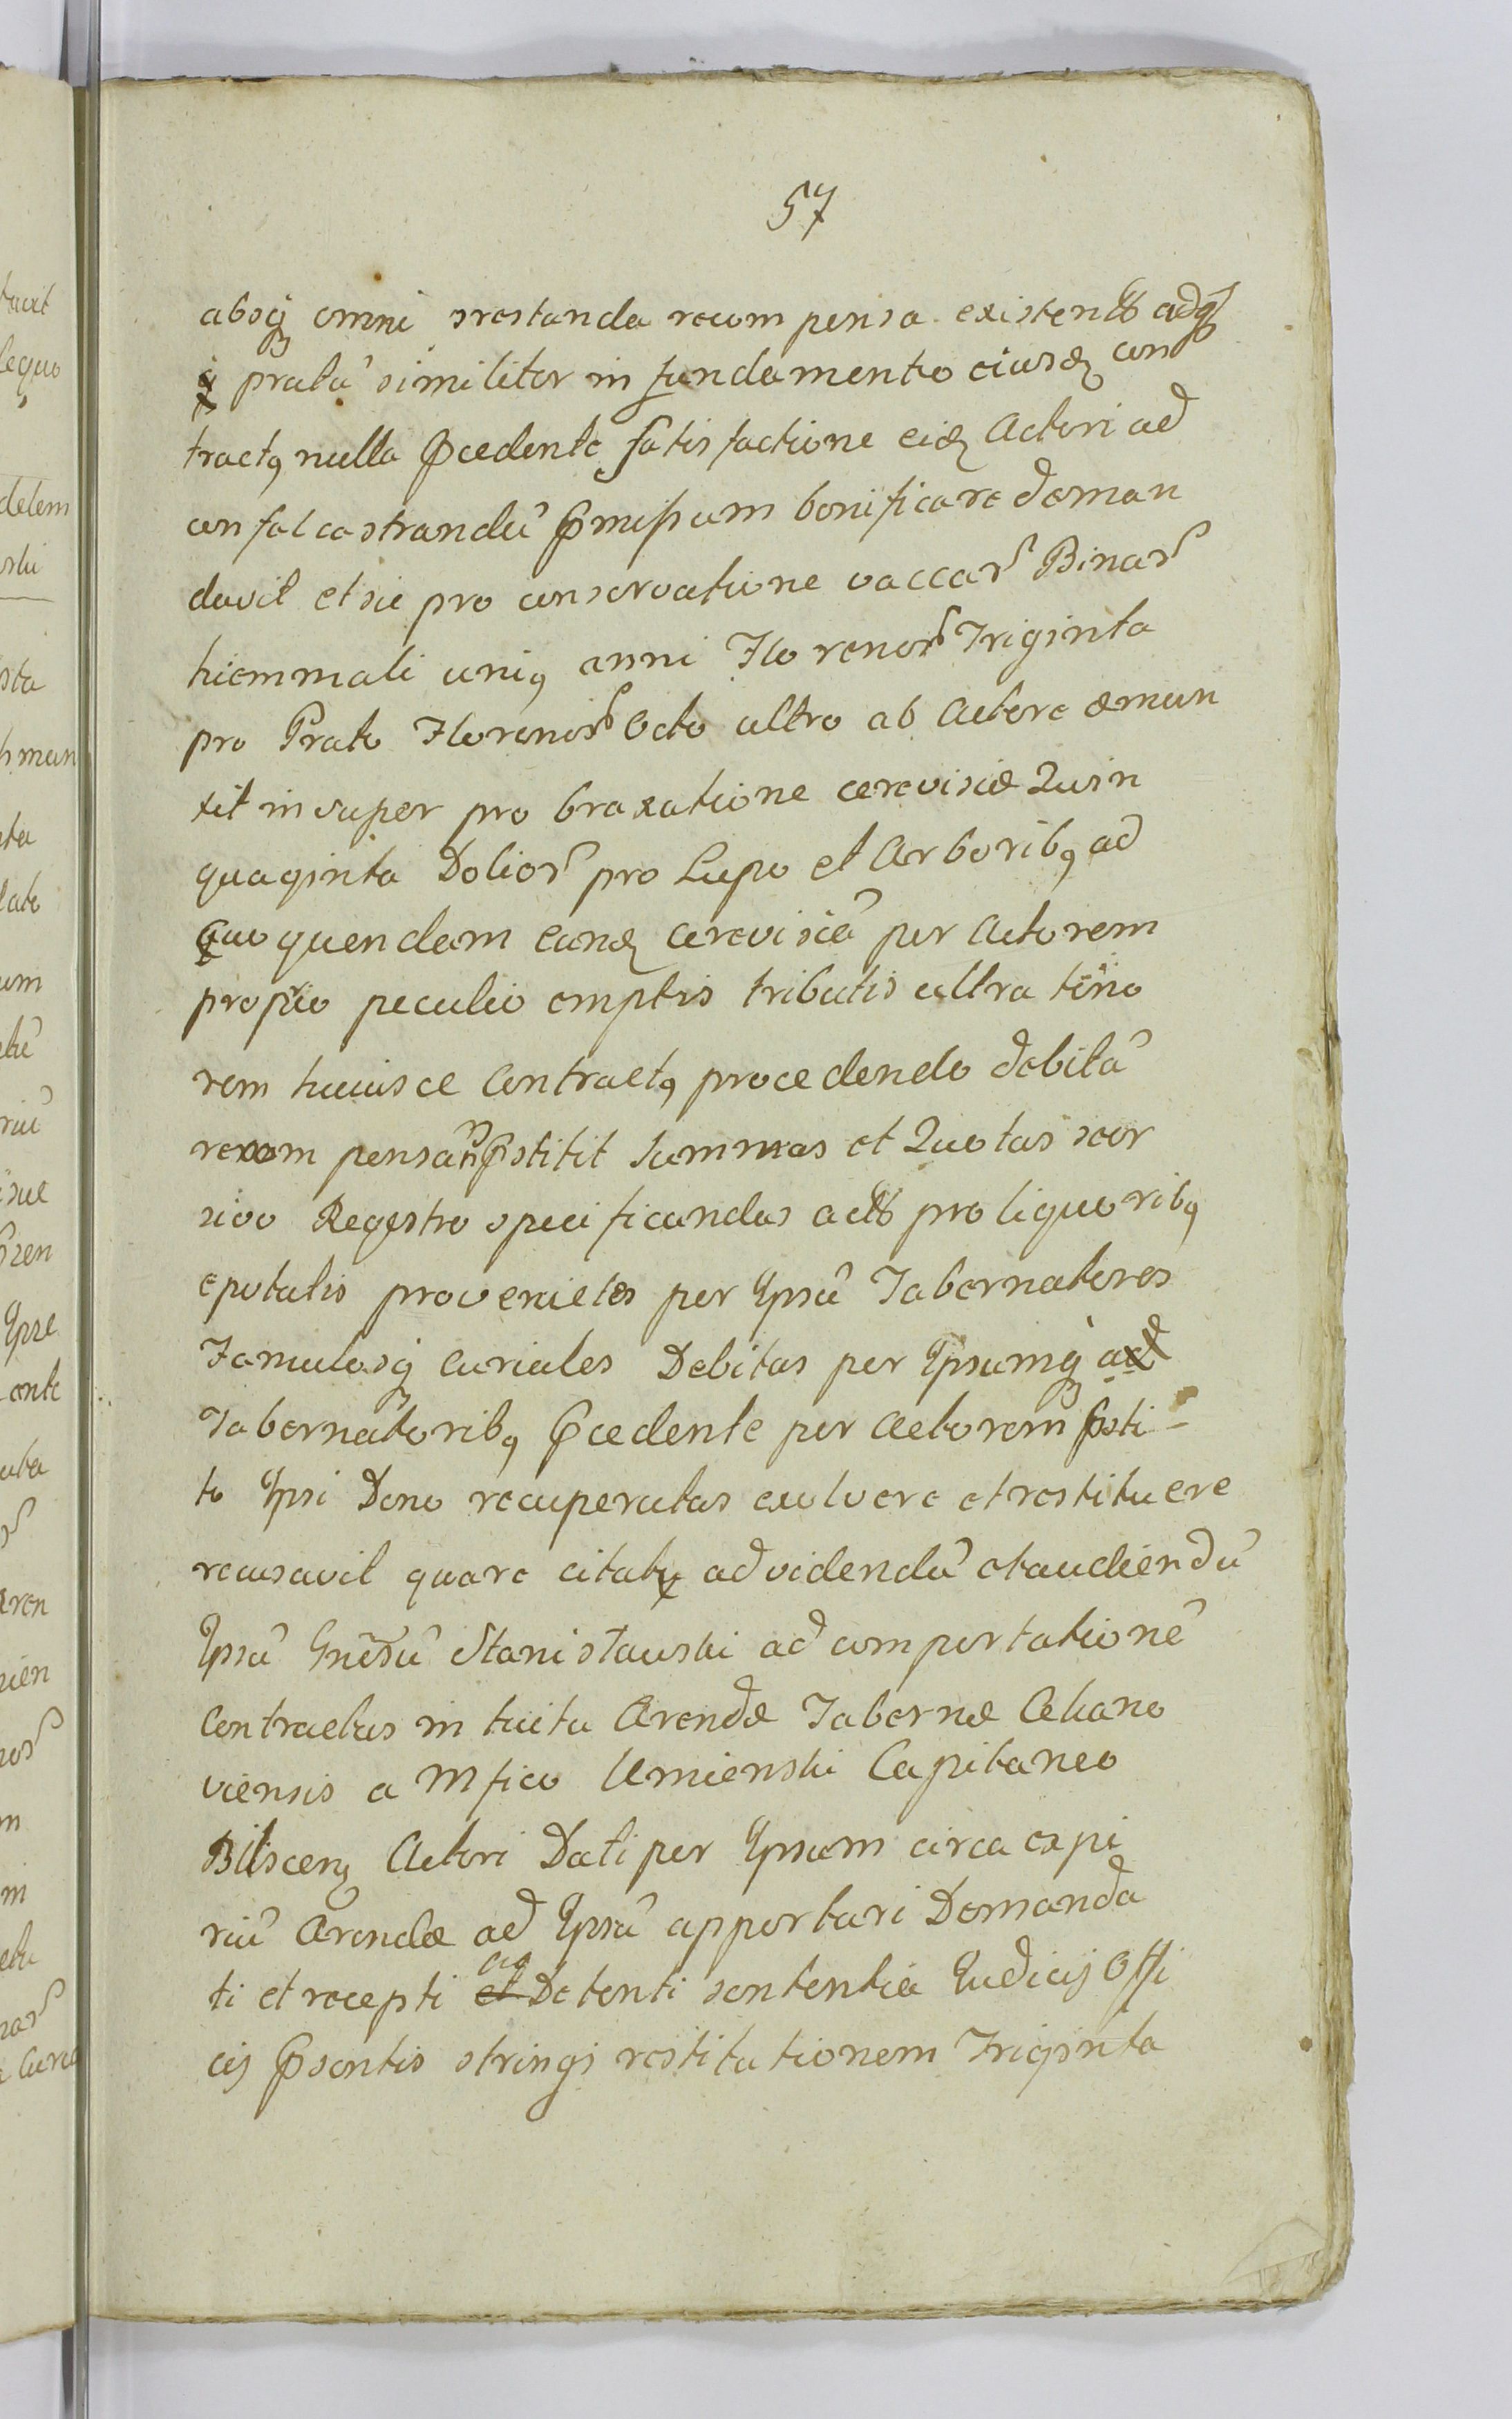 57
absq₃ omni prestanda recompensa existens adq₃
pratũ similiter in fundamento eiusd. con
tractq nulla Pcedente satisfactione eid. Actori ad
confalcastrandũ Pmissum bonificare deman
davit et sic pro conservatione vaccar Binar
hiemmali uniq anni Florenor Triginta
pro Prato Florenor Octo ultro ab Actore emun
xit insuper pro braxatione cerevisiæ Quin
quaginta Dolior pro Lupo et Arboribq ad
quoquendam eand. cerevisiã per Actorem
proprio peculio emptis tributis ultra teno
rem huiusce Contractq procedendo debitã
recompensam ñ Pstitit Summas et Quotas seor
sivo Regestro specificandas ac pro liquoribq
epotatis provenietes per Ipsũ Tabernatores
Famulosq₃ Curiales Debitas per Ipsumq₃
Tabernatoribq Pcedente per Actorem Psti-
to Ipsi Dono recuperatas exolvere et restituere
recusavit quare citatq ad videndũ et audiendũ
Ipsũ Gñesũ Stanisławski ad comportationẽ
Contractus intuitu Arendæ Tabernæ
viensis a Mfico Umienski Capitaneo
Actori Dati per Ipsum circa expi
riũ Arendæ ad Ipsũ apportari Demanda
ti et recepti et ac Detenti sententiã Iudicij Offi
cij Psentis stringi restitutionem Triginta
tavit
lequo
delem
sta
man
nta
lato
um
riũ
sue
Ipse
ente
uta
aren
rien
m
Cure